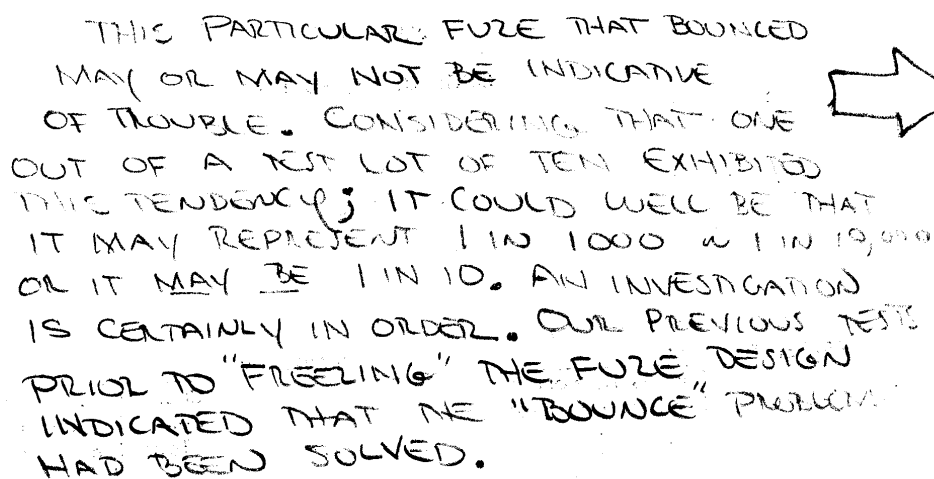 THIS PARTICULAR FUZE THAT BOUNCED
MAY OR MAY NOT BE INDICATIVE
OF TROUBLE. CONSIDERING THAT ONE
OUT OF A TEST LOT OF TEN EXHIBITED
THIS TENDENCY; IT COULD WELL BE THAT
IT MAY REPRESENT 1 IN 1000 or 1 IN 10,000
OR IT MAY BE 1 IN 10. AN INVESTIGATION
IS CERTAINLY IN ORDER. OUR PREVIOUS TESTS
PRIOR TO "FREEZING" THE FUZE DESIGN
INDICATED THAT THE "BOUNCE" PROBLEM
HAD BEEN SOLVED.